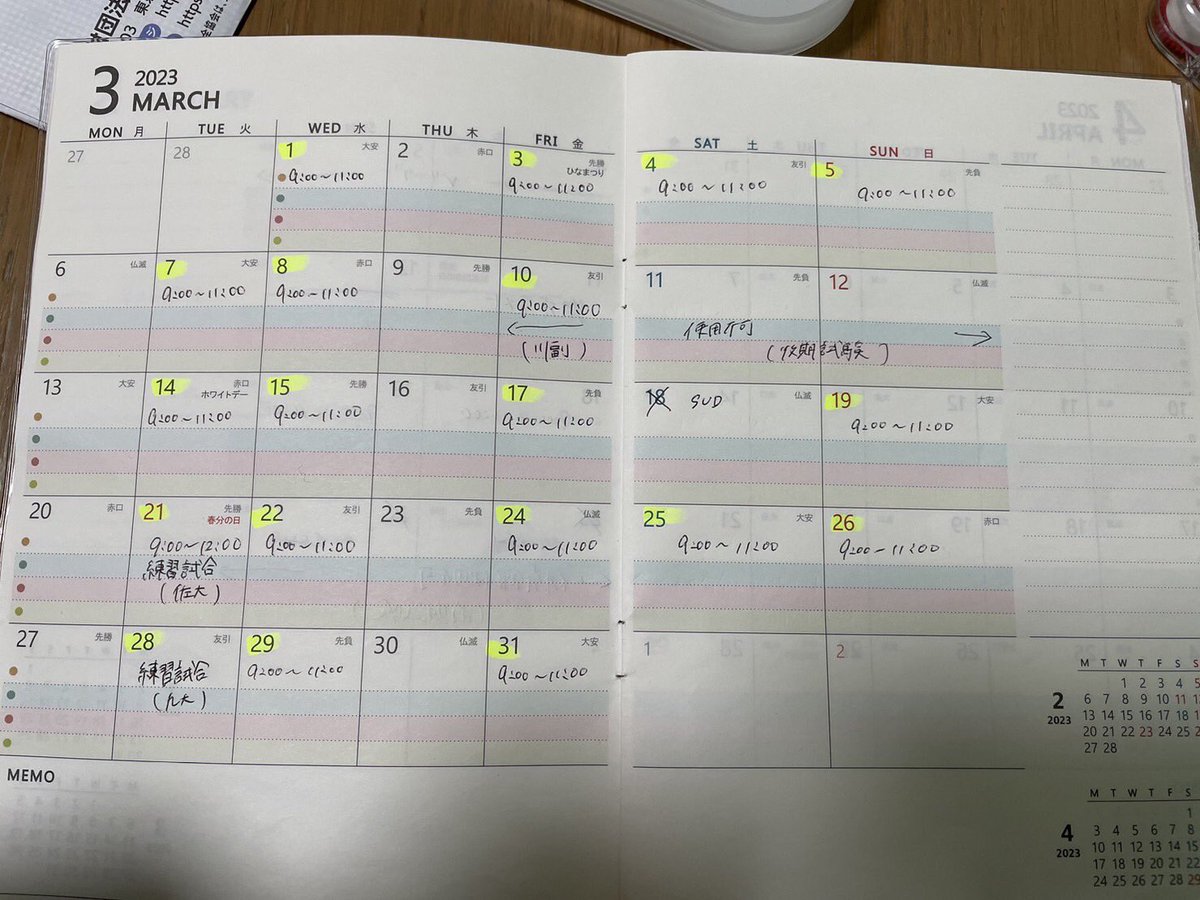 財団法
http
https
3
2023
MARCH
MON 月
TUE 火
WED 水
THU 木
FRI 金
SAT 土
SUN 日
27
28
1 大安
9:00~11:00
2 赤口
3 先勝
ひなまつり
9:00~11:00
4 友引
9:00~11:00
5 先負
9:00~11:00
6 仏滅
7 大安
9:00~11:00
8 赤口
9:00~11:00
9 先勝
10 友引
9:00~11:00
(川副)
11 先負
使用不可
(後期試験)
12 仏滅
13 大安
14 赤口
ホワイトデー
9:00~11:00
15 先勝
9:00~11:00
16 友引
17 先負
9:00~11:00
18 SUD 仏滅
19 大安
9:00~11:00
20 赤口
21 先勝
春分の日
9:00~12:00
練習試合
(佐大)
22 友引
9:00~11:00
23 先負
24 仏滅
9:00~11:00
25 大安
9:00~11:00
26 赤口
9:00~11:00
27 先勝
28 友引
練習試合
(九大)
29 先負
9:00~11:00
30 仏滅
31 大安
9:00~11:00
1
2
MEMO
2
2023
M T W T F S S
1 2 3 4 5
6 7 8 9 10 11
13 14 15 16 17 18
20 21 22 23 24 25
27 28
4
2023
M T W T F S
1
3 4 5 6 7 8
10 11 12 13 14 15
17 18 19 20 21 22
24 25 26 27 28 29